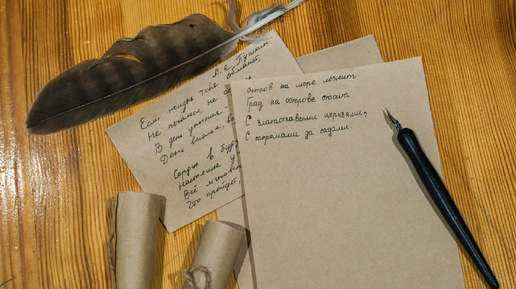 А. С. Пушкин
Если жизнь тебя обманет,
Не печалься, не
В день уныния
День веселья,
Сердце в
Настоящее
Всё
Что пройдёт,
Остров на море лежит
Град на острове стоит
С златоглавыми церквами,
С теремами да садами.